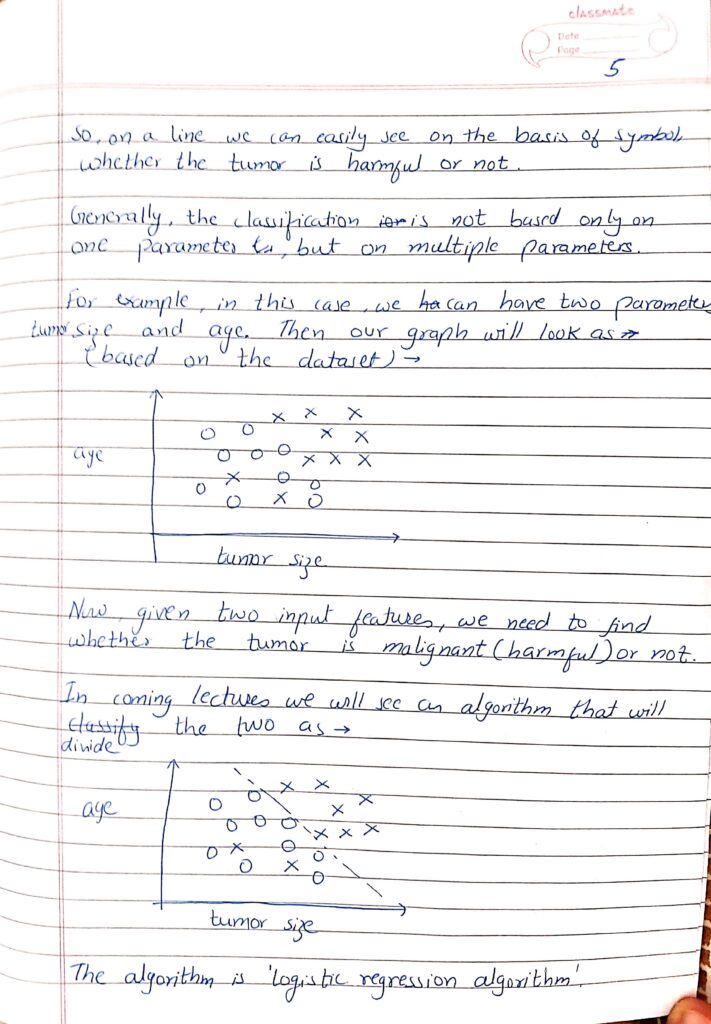 classmate
Date
Page
5
So, on a line we can easily see on the basis of symbol,
whether the tumor is harmful or not.
Generally, the classification is not based only on
one parameter, but on multiple parameters.
For example, in this case, we can have two parameter
tumor size and age. Then our graph will look as →
(based on the dataset) →
age
tumor size
Now, given two input features, we need to find
whether the tumor is malignant (harmful) or not.
In coming lectures we will see an algorithm that will
classify the two as →
divide
age
tumor size
The algorithm is 'logistic regression algorithm'.